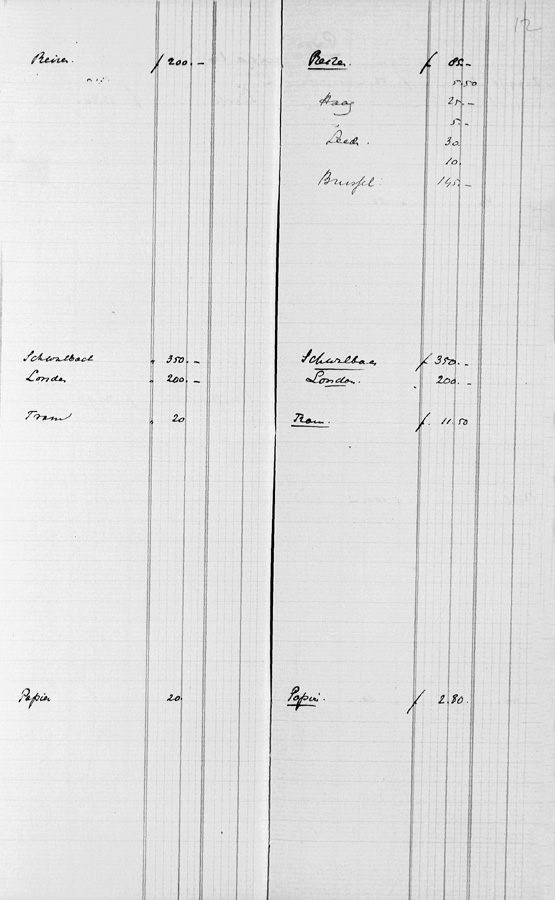 12
Reizen f 200.-
Schwalbach " 350.-
Londen " 200.-
Tram " 20
Papier 20.
Reizen. f 85.-
5.50
Haag 25.-
5.-
30
10.
Brussel 145.-
Schwalbach f 350.-
Londen. 200.-
Tram. f. 11.50
Papier. f 2.80.